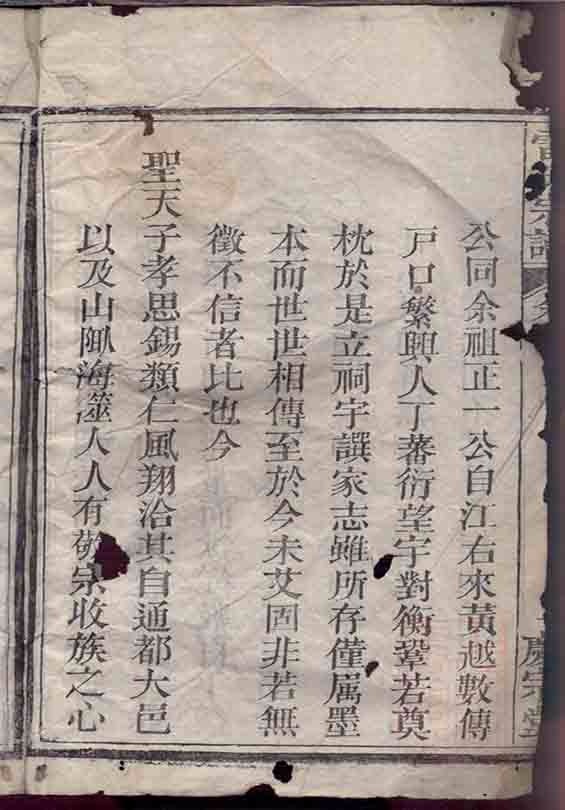 宗譜
慶宗堂
公同余祖正一公自江右來黃越數傳
戸口繁興人丁蕃衍望宇對衡鞏若奠
枕於是立祠宇譔家志雖所存僅属墨
本而世世相傳至於今未艾固非若無
徵不信者比也今
聖天子孝思錫類仁風翔洽其自通都大邑
以及山陬海澨人人有敬宗收族之心